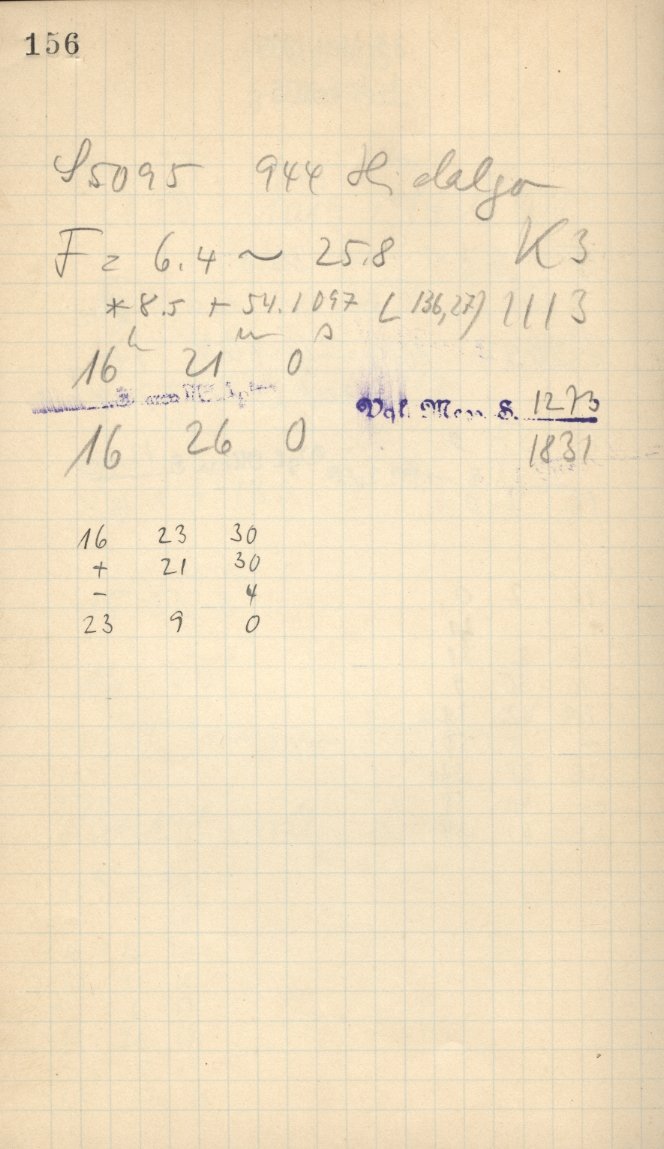 156
S5095 944 Hidalgo
F = 6.4 ~ 25.8 K3
*8.5 + 54.1097 (136,27) 1113
16h 21m 0s
Vgl. Mess. S. 1273
16 26 0 1831
16 23 30
+ 21 30
- 4
23 9 0